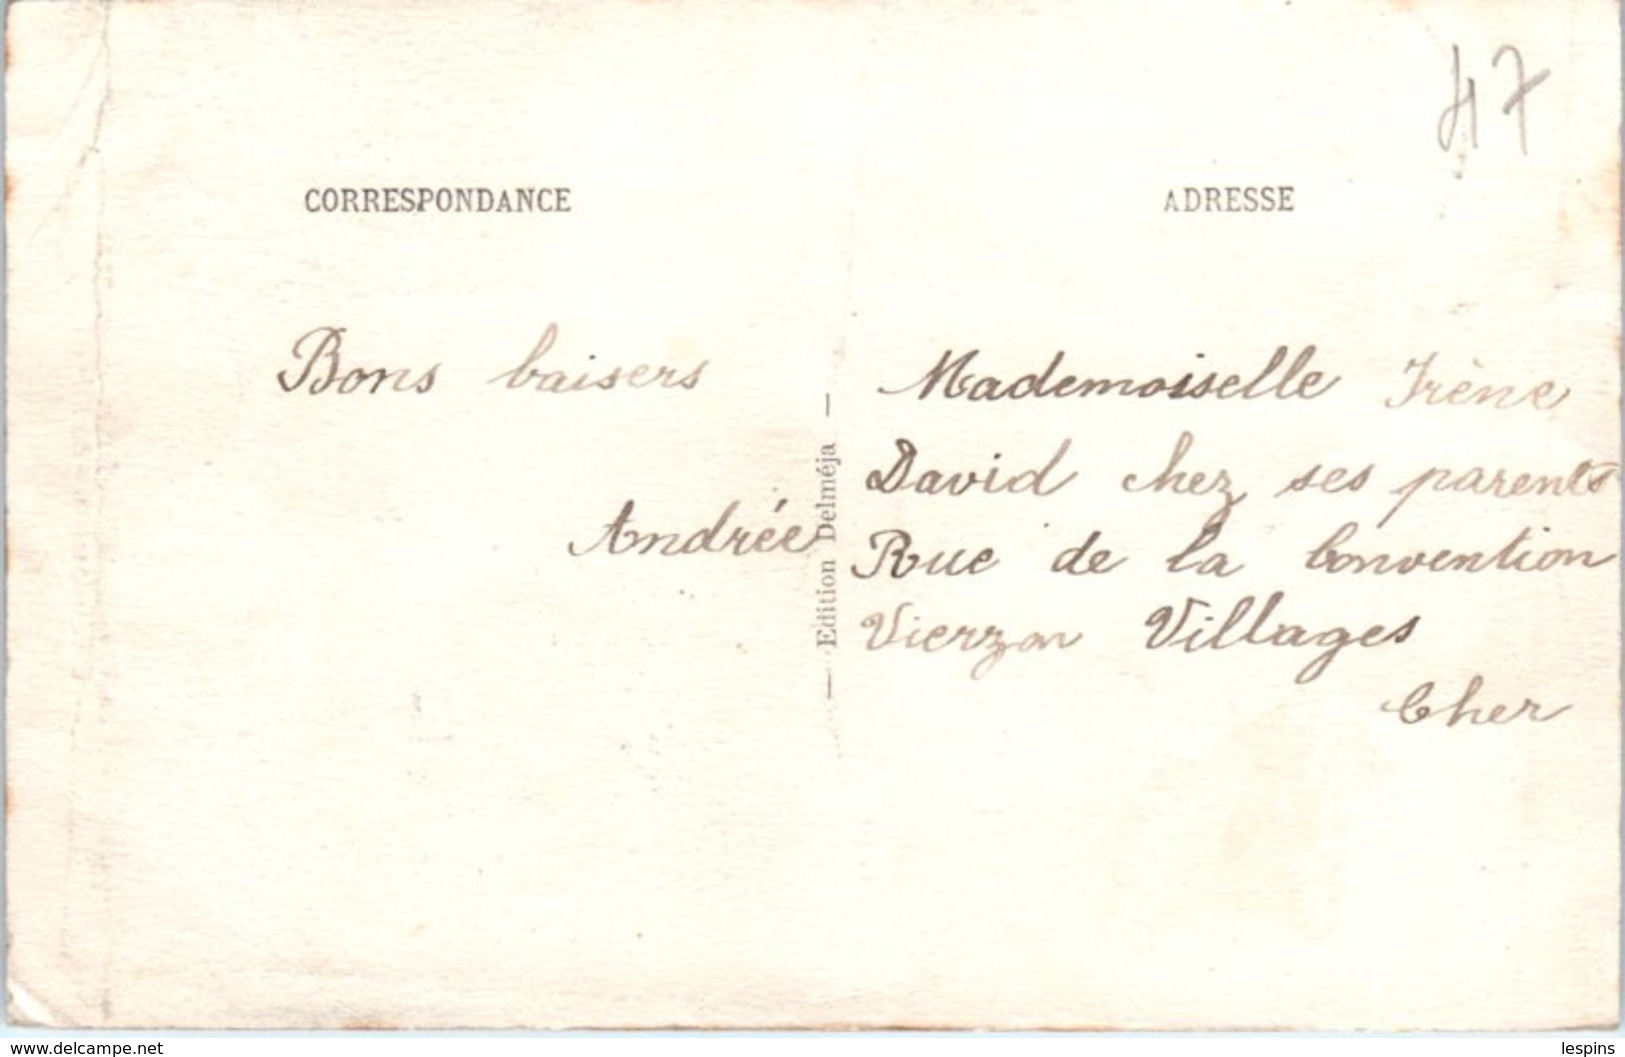 47
CORRESPONDANCE
ADRESSE
Bons baisers
Andrée
— Edition Delméja —
Mademoiselle Irène
David chez ses parents
Rue de la Convention
Vierzon Villages
Cher
www.delcampe.net
lespins